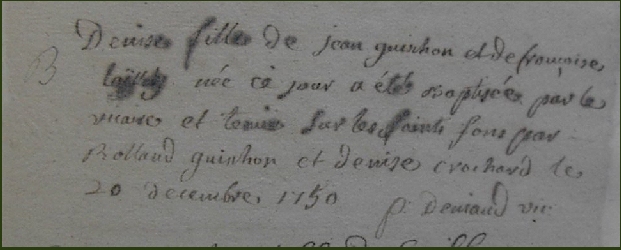 B Denise fille de jean guinhon et de francoise
née ce jour a été baptisée par le
vicaire et tenue sur les saints fons par
Rolland guinhon et denise crochard le
20 decembre 1750 p. Deniaud vic